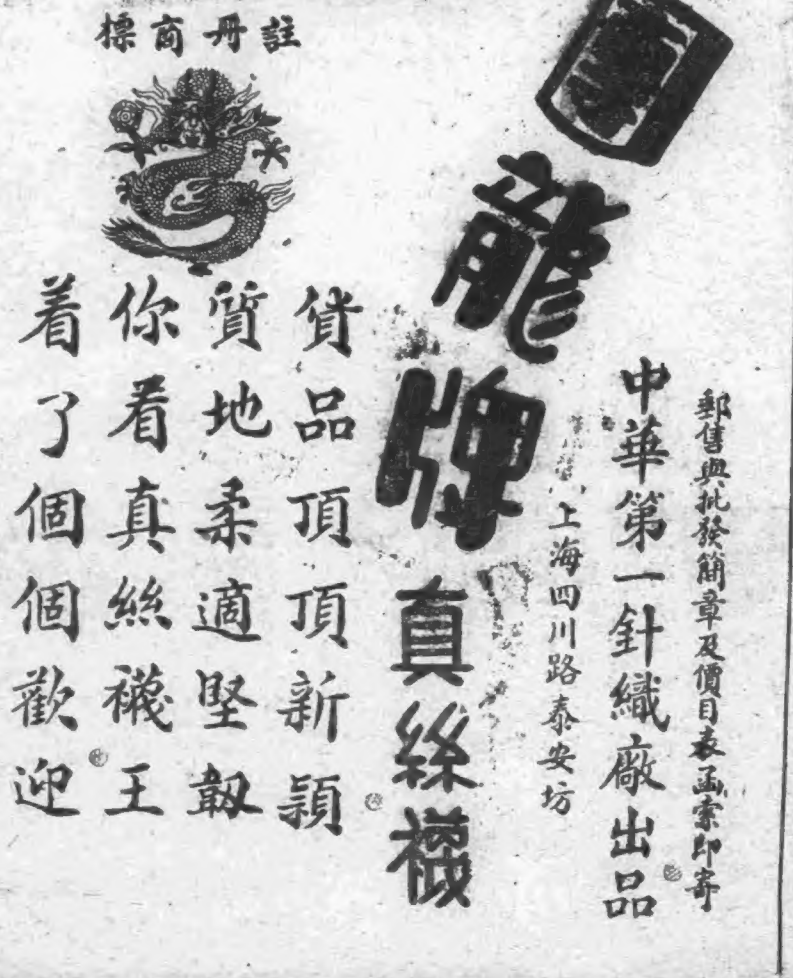 註冊商標
郵售與批發簡章及價目表函索即寄
中華第一針織廠出品
上海四川路泰安坊
龍牌真絲襪
貨品頂頂新穎
質地柔適堅韌
你看真絲襪王
着了個個歡迎